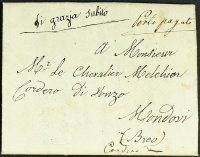 di grazia subito
Porto pagato
A Monsieur
Mr. Le Chevalier Melchior
Cordero Di Vonzo
Mondovi
(Breo)